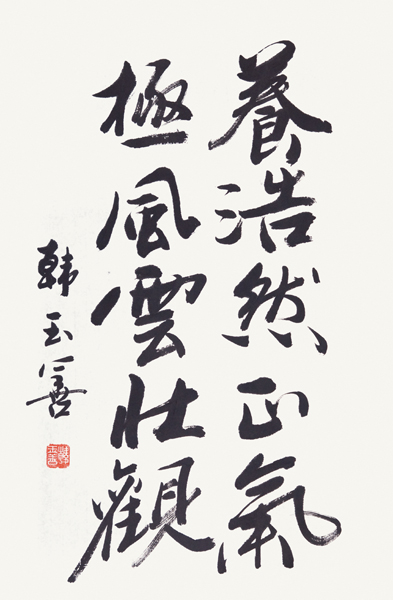 養浩然正氣
極風雲壯觀
韩玉善